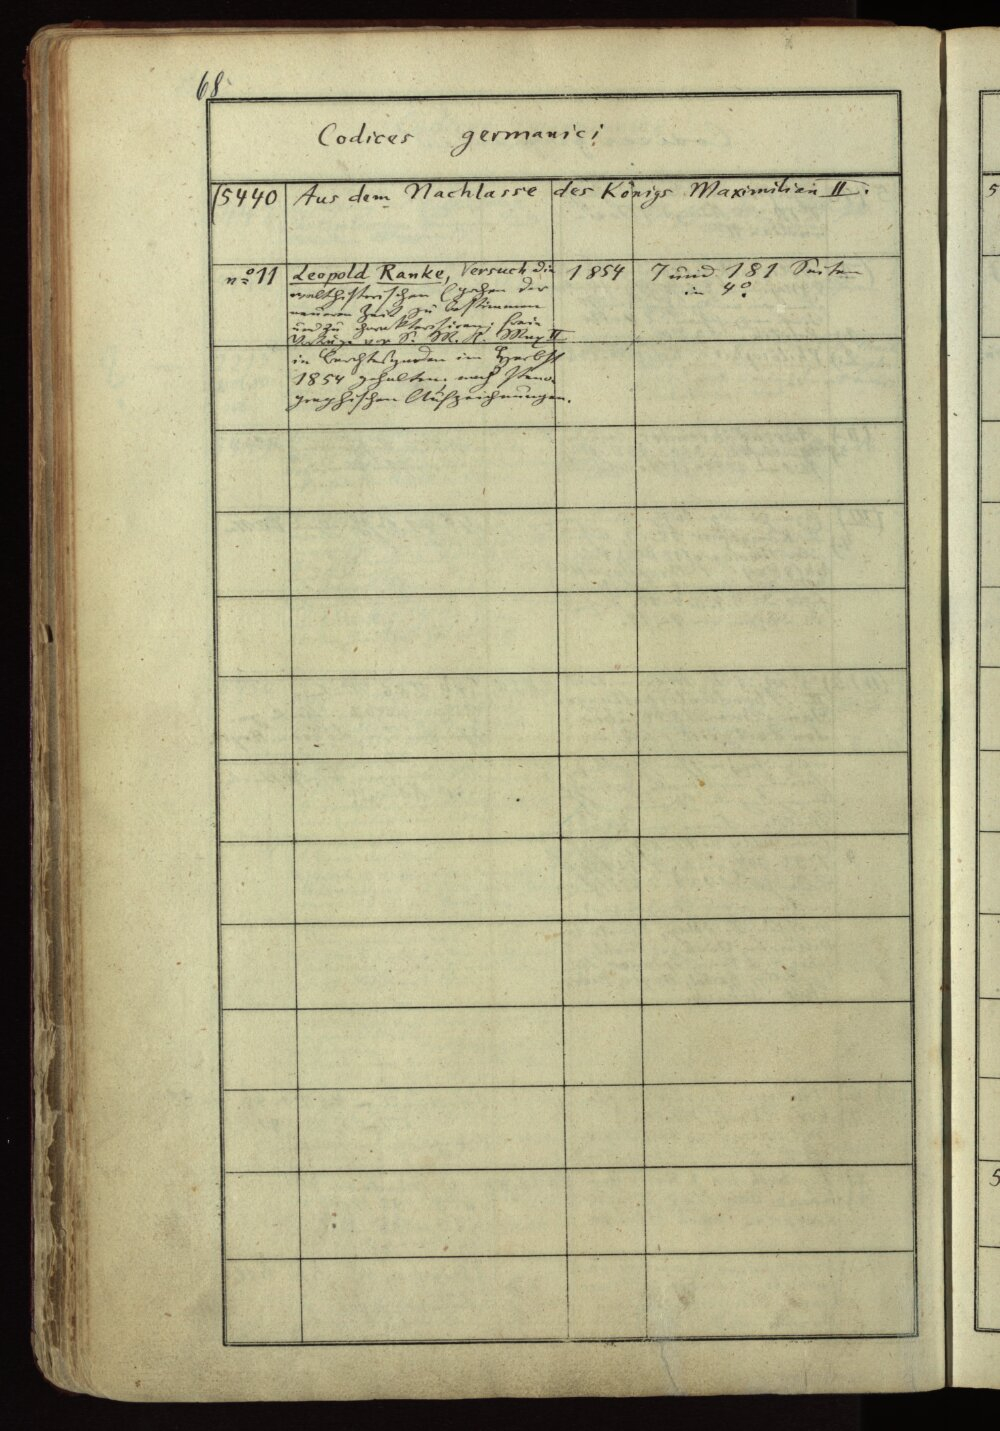 68
Codices germanici
(5440 Aus dem Nachlasse des Königs Maximilian II.
nº 11 Leopold Ranke, Versuch die 1854 7 und 181 Seiten
welthistorischen der in 4º
neueren Zeit zu bestimmen
und zu charakterisiren; freie
Vorträge vor S. M. K. Max II
in Berchtesgaden im Herbst
1854 gehalten, nach steno-
graphischen Aufzeichnungen.
5
5